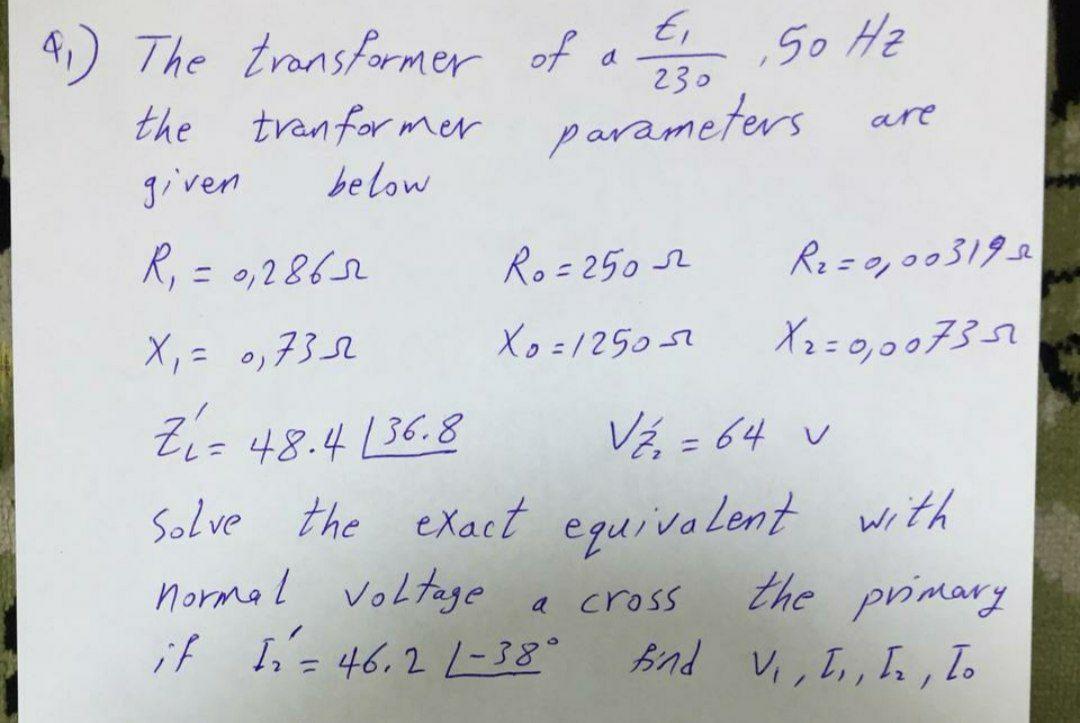 Q1) The transformer of a E1/230 , 50 Hz
the tranformer parameters are
given below
R1 = 0,286Ω R0 = 250 Ω R2 = 0,00319Ω
X1 = 0,73Ω X0 = 1250Ω X2 = 0,0073Ω
ZL' = 48.4 ∠36.8 VZ2' = 64 v
Solve the exact equivalent with
normal voltage a cross the primary
if I2' = 46.2 ∠-38° find V1, I1, I2, I0